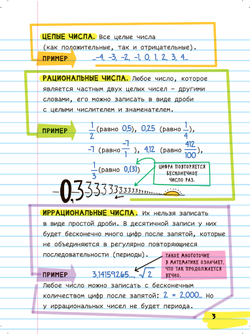 ЦЕЛЫЕ ЧИСЛА. Все целые числа
(как положительные, так и отрицательные).
ПРИМЕР ...-4, -3, -2, -1, 0, 1, 2, 3, 4...
РАЦИОНАЛЬНЫЕ ЧИСЛА. Любое число, которое
является частным двух целых чисел – другими
словами, его можно записать в виде дроби
с целыми числителем и знаменателем.
ПРИМЕР
1/2 (равно 0,5), 0,25 (равно 1/4),
-7 (равно -7/1), 4,12 (равно 412/100),
1/3 (равно 0,(3))
ЦИФРА ПОВТОРЯЕТСЯ
БЕСКОНЕЧНОЕ
ЧИСЛО РАЗ.
0,33333333
ИРРАЦИОНАЛЬНЫЕ ЧИСЛА. Их нельзя записать
в виде простой дроби. В десятичной записи у них
будет бесконечно много цифр после запятой, которые
не объединяются в регулярно повторяющиеся
последовательности (периоды).
ТАКОЕ МНОГОТОЧИЕ
В МАТЕМАТИКЕ ОЗНАЧАЕТ,
ЧТО ТАК ПРОДОЛЖАЕТСЯ
ВЕЧНО.
ПРИМЕР 3,14159265..., √2
Любое число можно записать с бесконечным
количеством цифр после запятой: 2 = 2,000... Но
у иррациональных чисел не будет периода.
3